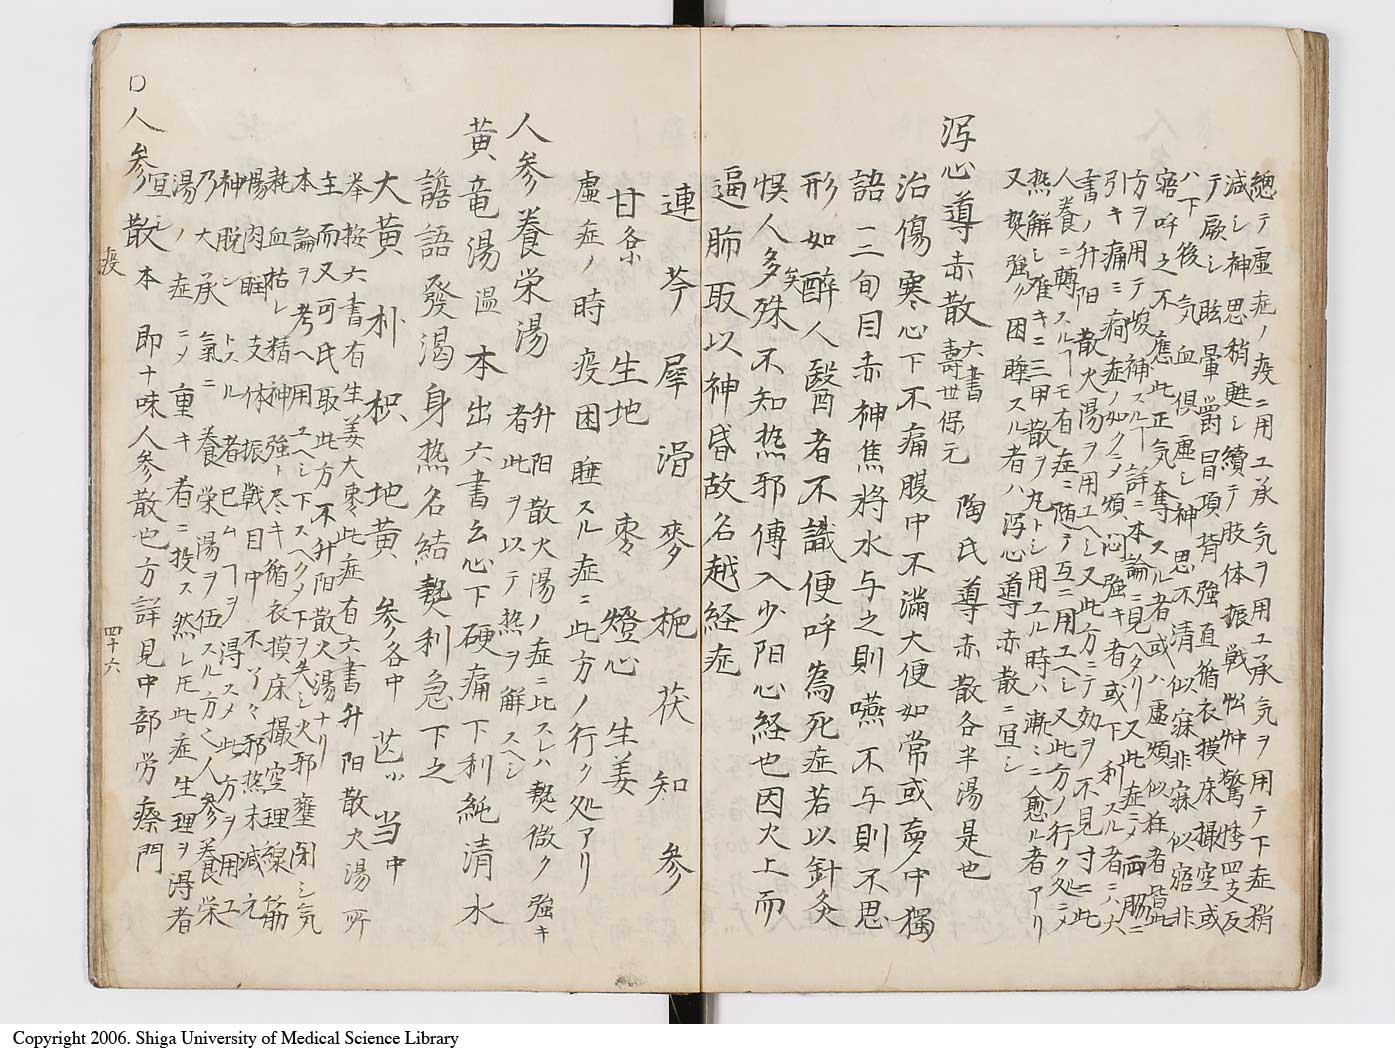 總テ虚症ノ疫ニ用ユ承気ヲ用ユ承気ヲ用テ下症稍
減シ神思稍甦シ續テ肢体振戦怔忡驚悸四支反
テ厥シ眩暈欝冒項背強直循衣摸床撮空或
ハ下後気血倶虚シ神思不清似寐非寐似寤非
寤呼之不應此正気奪スル者或ハ虚煩似狂者皆此
方ヲ用テ峻補スル
引キ痛ミ癇症ノ如クニメ煩悶強キ者或下利スル者ニハ六
書ノ升阳散火湯ヲ用ユヘシ又此方ニテ効ヲ不見寸ニ此
人養ニ轉スルヿモ有症ニ随テ互ニ用ユヘシ又此方ノ行ク処ニメ
熱解シ難キニ三甲散ヲ丸トシ用ユル時ハ漸ニ愈ル者アリ
又熱強ク困睡スル者ハ瀉心導赤散ニ宜シ
瀉心導赤散 六書 壽世保元 陶氏導赤散各半湯是也
治傷寒心下不痛腹中不満大便如常或夢中獨
語一二旬目赤神焦將水与之則嚥不与則不思
形如酔人醫者不識便呼為死症若以針灸
悞人多矣殊不知熱邪傳入少阳心経也因火上而
逼肺取以神昏故名越経症
連 芩 犀 滑 麥 梔 茯 知 参
甘各小 生地 棗 燈心 生姜
虚症ノ時疫困睡スル症ニ此方ノ行ク処アリ
人参養栄湯 升阳散火湯ノ症ニ比スレハ熱微ク強キ
者此ヲ以テ熱ヲ解スヘシ
黄竜湯 温 本出六書云心下硬痛下利純清水
譫語發渇身熱名結熱利急下之
大黄 朴 枳 地黄 参各中 芒小 当中
挙按六書有生姜大棗此症有六書升阳散火湯所
主而又可氏取此方不升阳散火湯ナリ
本論ヲ考ヘ用ユヘシ下スヘクメ下ヲ失シ火邪壅閉シ気
耗血枯レ精神強ト尽キ循衣摸床撮空理線筋
惕肉瞤支体振戦目中不了々邪熱未減元
神脱シトスル者已ムヿヲ得スメ此方ヲ用ユ
乃大承氣ニ養栄湯ヲ伍スル方也人参養栄
湯ノ症ニメ重キ者ニ投ス然レ圧此症生理ヲ得者
宜シ
口人参散 本 即十味人参散也方詳見中部労療門
疫
四十六
Copyright 2006. Shiga University of Medical Science Library